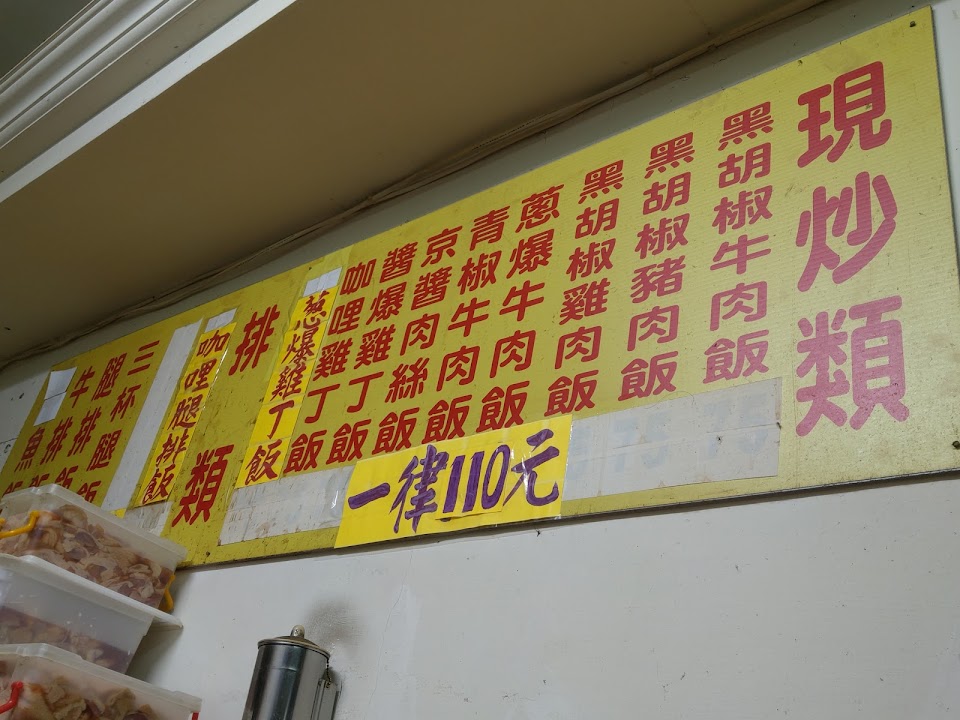 現炒類
黑胡椒牛肉飯
黑胡椒豬肉飯
黑胡椒雞肉飯
蔥爆牛肉飯
青椒牛肉飯
京醬肉絲飯
醬爆雞丁飯
咖哩雞丁飯
蔥爆雞丁飯
一律110元
75 75
排類
咖哩腿排飯
三杯腿
腿排飯
牛排飯
魚飯